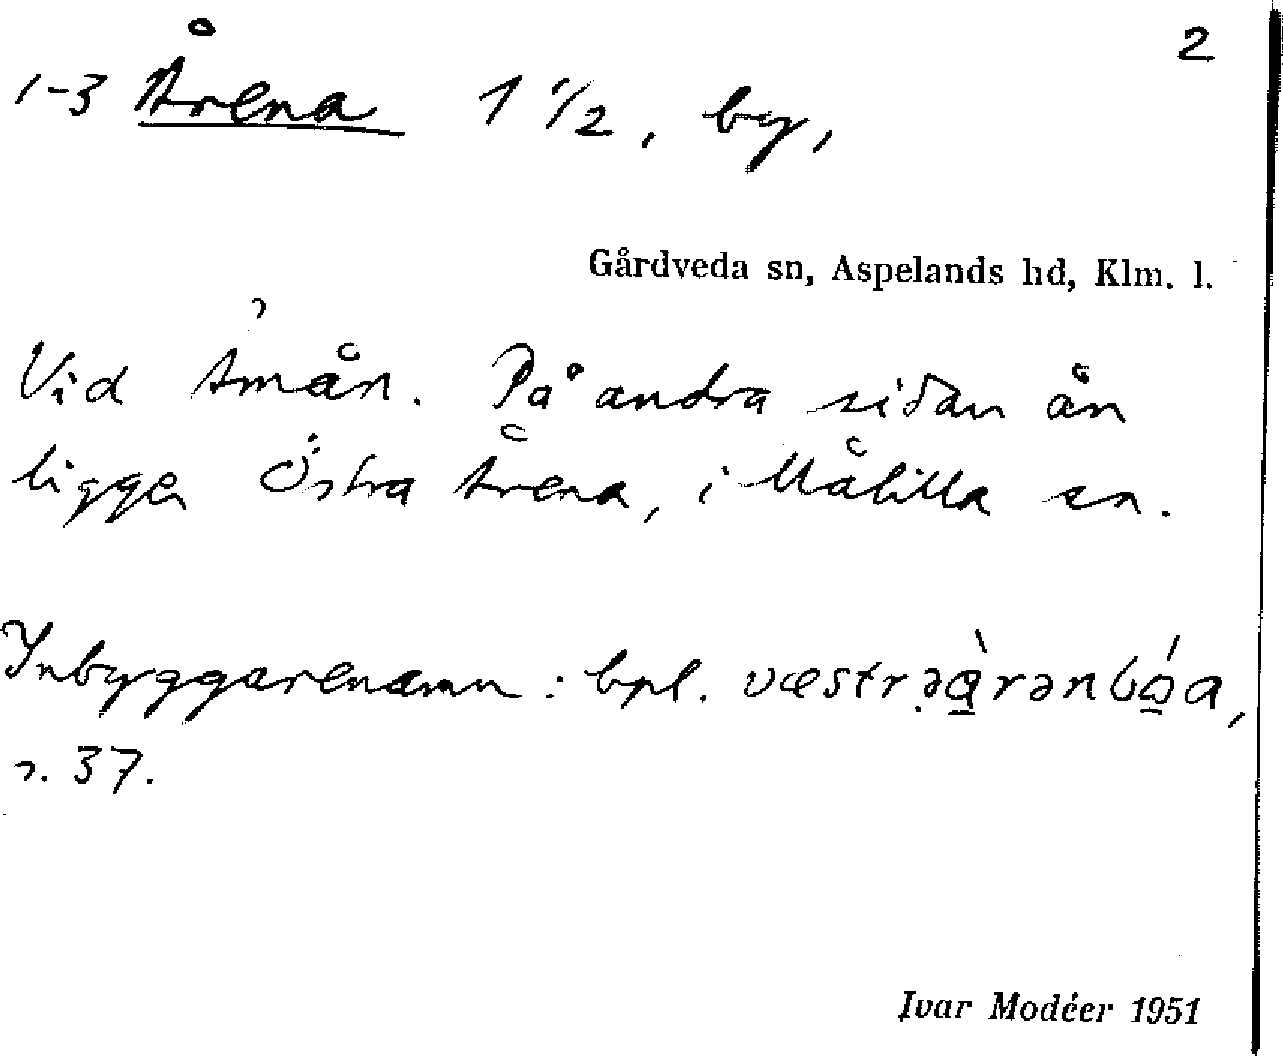 2
1-3 Årena 1 1/2, by,
Gårdveda sn, Aspelands hd, Klm. l.
Vid Åmån. På andra sidan ån
ligger Östra Årena, i Målilla sn.
Inbyggarenamn: bpl.
s. 37.
Ivar Modéer 1951